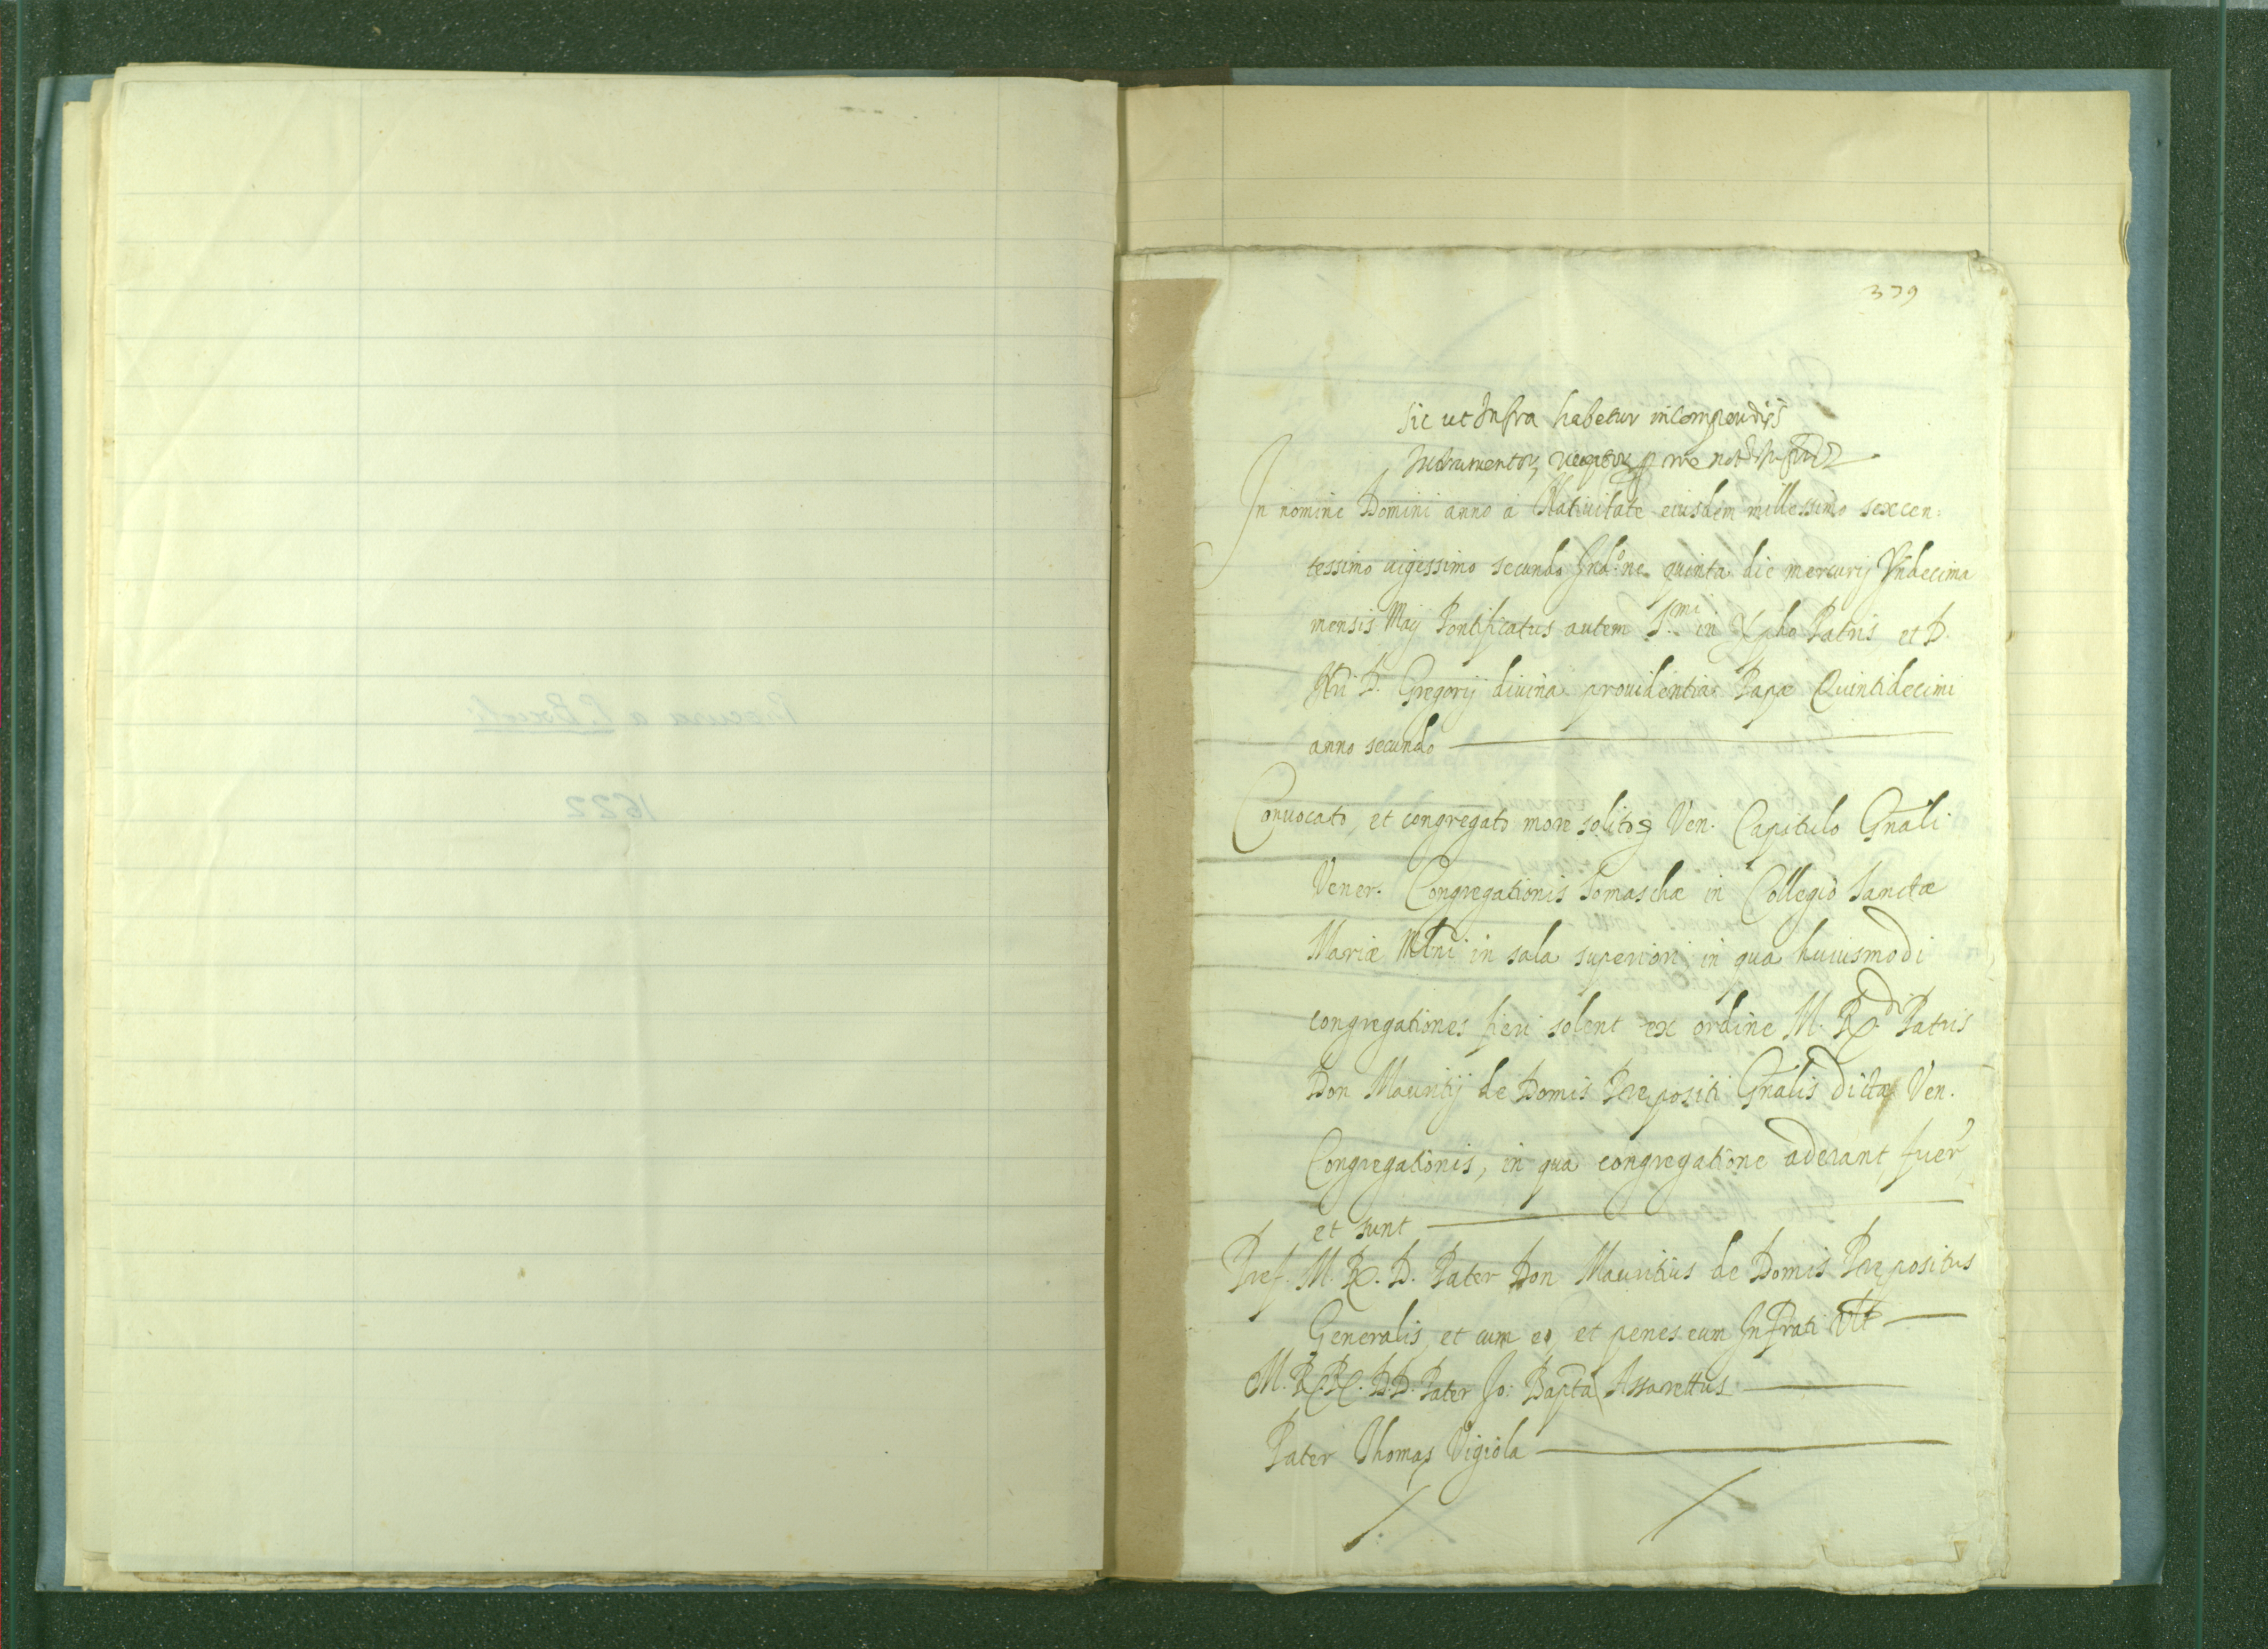 379
Sic ut Infra habetur in Compendijs
Instrumentor, receptor p me not
In nomine Domini anno à Natiuitate eiusdem millessimo sexcen:
tessimo uigessimo secundo Ind.ne quinta die mercurij Vndecima
mensis Maij Pontificatus autem S.mi in Xpho Patris et D.
Nri D. Gregorij diuina prouidentia Papæ Quintidecimi
anno secundo
Conuocato, et congregato more solito Ven. Capitulo Gnali
Vener. Congregationis Somaschæ in Collegio Sanctæ
Mariæ in sala superiori in qua huiusmodi
congregationes fieri solent ex ordine M. R.di Patris
Don Mauritij de Domis Præpositi Gnalis dictæ Ven.
Congregationis, in qua congregatione aderant fuer
et sunt
Pref. M. R. D. Pater Don Mauritius de Domis Præpositus
Generalis, et cum eo, et penes eum Infrati Vlt
M. R.R. D.D. Pater Jo: Bapta Assarettus
Pater Thomas Vigiola